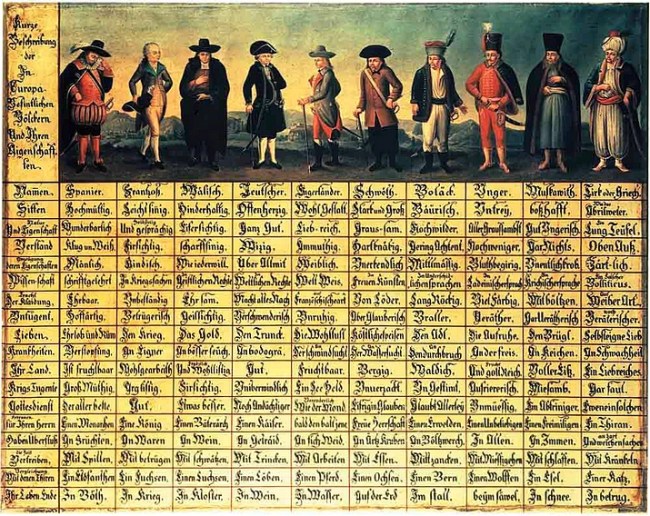 Kurze
Beschreibung
der
In
Europa
Befintlichen
Völckern
Und Ihren
Aigenschaft
ten.
Namen. Spanier. Frantzoß. Wälisch. Teutscher. Engerländer. Schwöth. Boläck. Unger. Muskawith. Tirk oder Griech.
Sitten Hochmüttig. Leichtsinig. Hinderhaltig Offenherzig. Wohl Gestalt. Stark und Groß Bäurisch. Untrey, boßhafft. Abrilweter.
Und Eigenschaft Wunderbarlich Und gesprächig Eifersichtig Ganz Gut. Lieb-reich. Graus-sam. Hochwilder. Aller Graussambst Gut Ungerisch. Lung Teufel.
Verstand Klug un Weiß. Firsichtig. scharffsinig. Wizig. Anmuthig. Hartknätig. Gering Achtent. Nochweniger. Gar Nichts. Oben Auß.
deren Eigenschaften Mänlich. Kindisch. Wie iederwill. Über Allmit Weiblich. Unertendlich Mittlmässig. Bluthbegirig. Unentlichkrob. Zärt-lich.
Wissenschaft schrifftgelehrt In Kriegsachen Geistlichen Rechte Weltlichen Rechte Welt Weis. Freuen Künsten.
der Kleidung. Ehrbaar. Unbeständig Ehrsam. Macht alles Nach Französischeart Von Löder. Lang Röckig. Viel Färbig. Mit böltzen. Weiber Art.
Untugent. Hoffärtig. Betrügerisch Geillsichtig Verschwenderisch Unruhig. Über Glauberisch Braller. Veräther. Verätherischer.
Lieben. Ehrlob und Rüm Den Krieg. Das Gold. Den Trunck. Die Wohllust Köstlichespeisen Den Adl. Die Aufruhe. Den Brügl. Selbsteigne Lieb
Krankheiten. Verstopfung. An Eigner An böser seüch. An bodogrä. Der schwindsucht Der Wassersucht Den Durchbruch An der freis. An Keichen. An Schwachheit
Ihr Land. Ist fruchtbaar Wohlgearbeith Und Wohllistig Gut. Fruchtbaar. Bergig. Waldich. Und gold Reich. Voller Eiß. Ein Liebreiches.
Krigs Tugente Groß Muthig. Arg listig. Firsichtig. Unüberwindlich Ein See Held. Unverzackt. Un Gestimt. Aufriererisch. Miesamb. Gar faul.
Gottesdienst Der aller beste. Gut. Etwas besser. Noch Andächtiger Wie der Mond. Eifrig in Glauben Glaubt Allerley Unmüessig. Ein Abtriniger. Eweneinsolchen
für Ihren Herrn Einen Monarchen Eine König Einen Käiser. bald den bald jene Freie Herrschaft Einen Erwelden Einen Unbeliebigen Einen Freimilligen Ein Thiran.
Haben Überfluß An Früchten. An Waren An Wein. An Geträid. An fisch Weid. An Ärtz Kruben An Böltzwerch. In Allen. An Immen.
Mit Spillen. Mit betrügen Mit schwätzen. Mit Trincken. Mit Arbeiten Mit Essen. Mit zancken. Mit Miessigehen Mit schlaffen. Mit Kränkeln
Mit denen Thiren Ein Elöfanthen Ein Fuchsen. Einen Luchsen. Einen Löben. Einen Pferd. Einen Ochsen. Einen Bern Einen Wolffen Ein Esel. Einer Katz.
Ihr Leben Ende In Böth. In Krieg. In Kloster. In Wein. In Wasser, Auf der Erd Im stall. beym sawel. In schnee. In betrug.